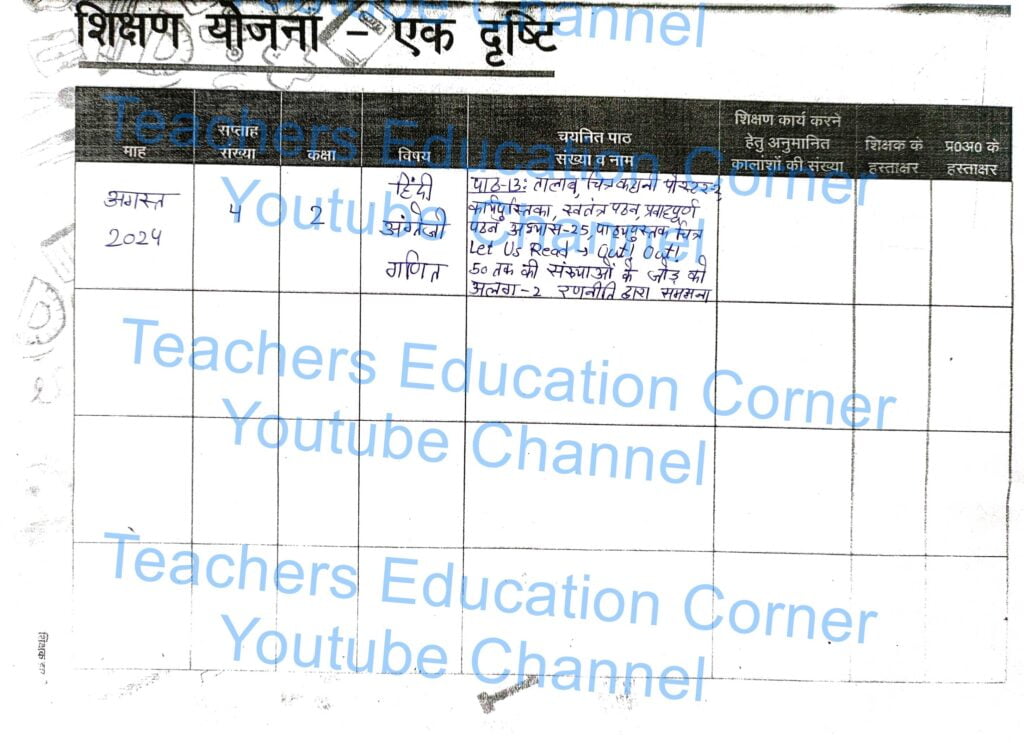 Youtube Channel
शिक्षण योजना – एक दृष्टि
Teachers Education Corner
Youtube Channel
माह
सप्ताह
संख्या
कक्षा
विषय
चयनित पाठ
संख्या व नाम
शिक्षण कार्य करने
हेतु अनुमानित
कालांशों की संख्या
शिक्षक के
हस्ताक्षर
प्र0अ0 के
हस्ताक्षर
अगस्त
2024
4
2
हिंदी
अंग्रेजी
गणित
पाठ-13: तालाब, चित्र कहानी पोस्टर-2,
कार्यपुस्तिका, स्वतंत्र पठन, प्रवाहपूर्ण
पठन अभ्यास-25, पाठ्यपुस्तक चित्र
Let Us Read → Out! Out!
50 तक की संख्याओं के जोड़ को
अलग-2 रणनीति द्वारा समझना
Teachers Education Corner
Youtube Channel
Teachers Education Corner
Youtube Channel